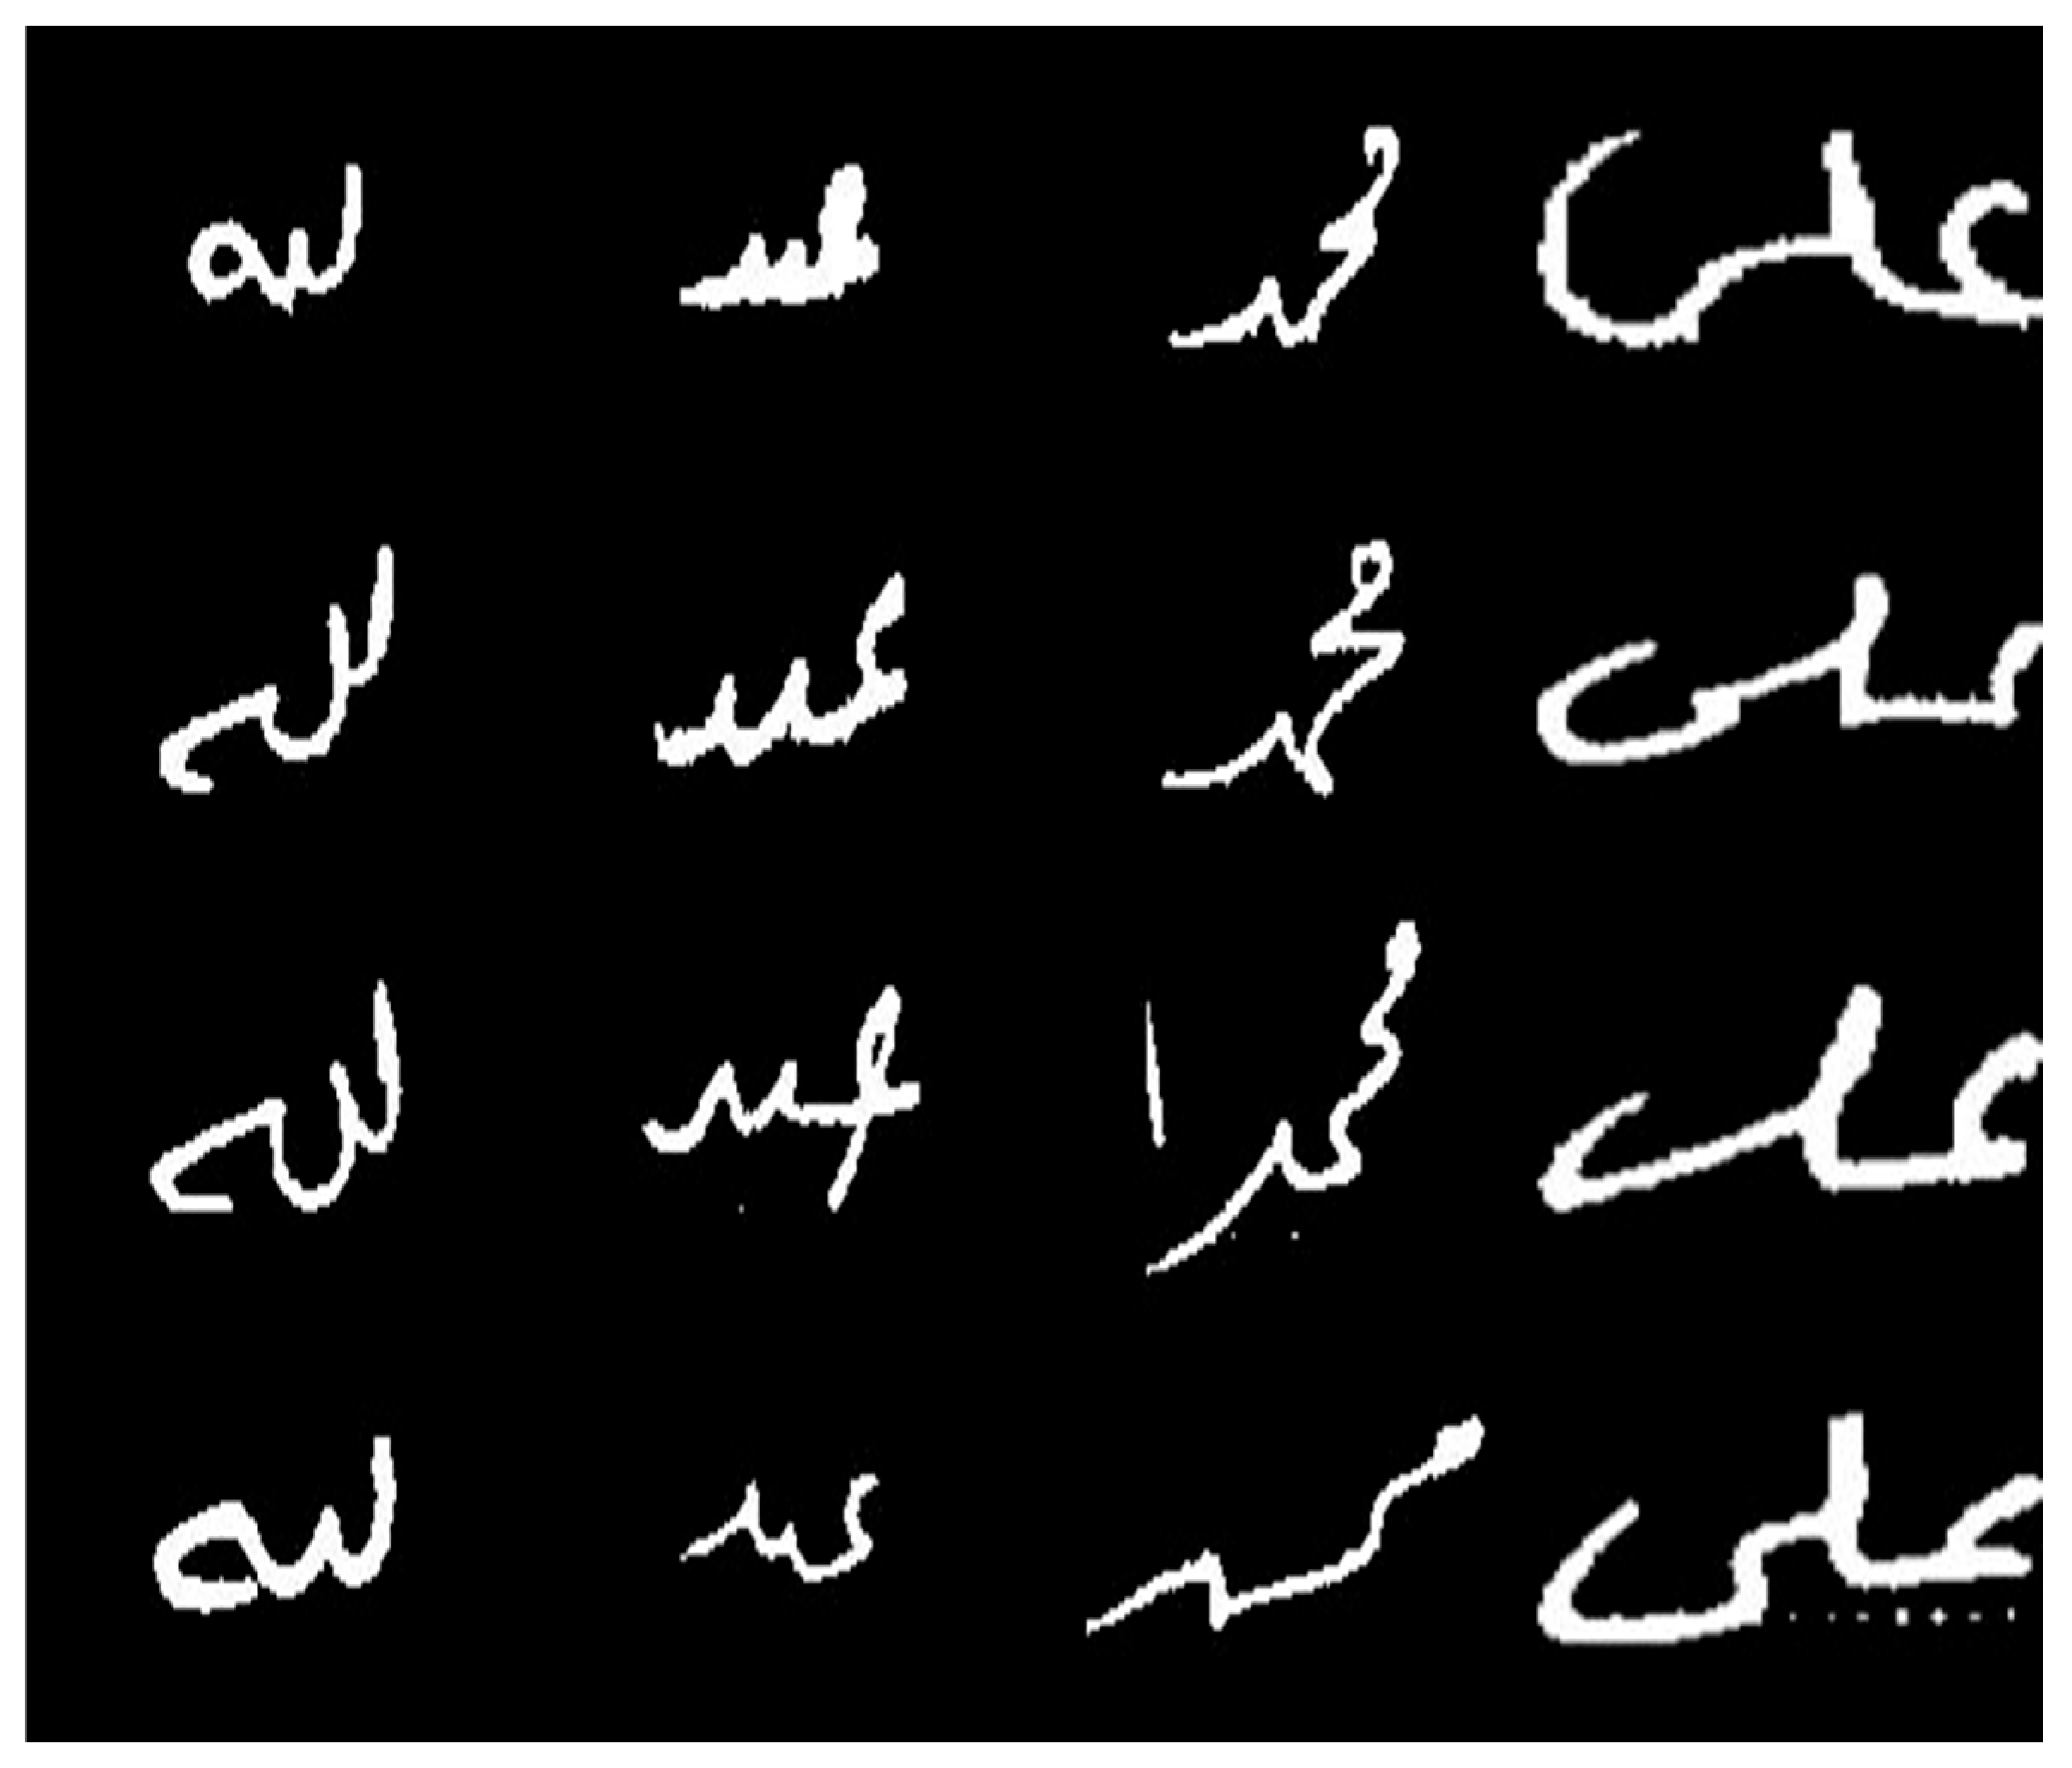 على محمد عبد لله
على محمد عبد لله
على محمد عبد لله
على محمد عبد لله